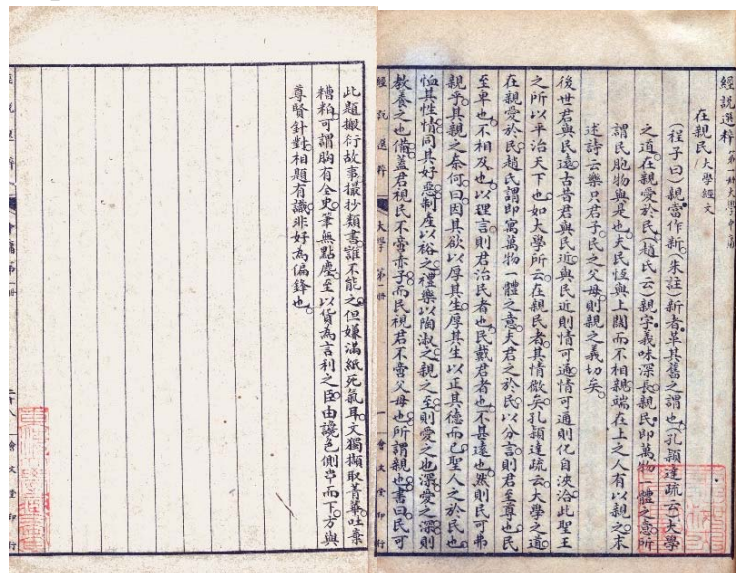 經說選粹
在親民 大學經文
(程子曰)親當作新(朱註)新者革其舊之謂也(孔穎達疏云)大學
之道在親愛於民(趙氏云)親字義味深長親民即萬物一體之意所
謂民胞物與是也夫民恆與上闊而不相親端在上之人有以親之朮
述詩云樂只君子民之父母則親之義切矣
後世君與民遠古昔君與民近與民近則情可通情可通則化自浹洽此聖王
之所以平治天下也如大學所云在親民者其情微矣孔穎達疏云大學之道
在親愛於民趙氏謂即寓萬物一體之意夫君之於民以分言則君至尊也民
至卑也不相及也以理言則君治民者也民戴君者也不甚遠也然則民可弗
親乎其親之奈何曰因其欲以厚其生厚其生以正其德而已聖人之於民也
恤其性情同其好惡制產以裕之禮樂以陶淑之親之至則愛之也深愛之深則
教養之也備蓋君視民不啻赤子而民視君不啻父母也所謂親也書曰民可
經說選粹 大學 第一冊 一 會文堂印行
此題搬衍故事撮抄類書誰不能之但嫌滿紙死氣耳文獨擷取菁華吐棄
糟粕可謂胸有全史筆無點塵至以貨為言利之臣由讒色側串而下方與
尊賢針對相題有識非好為偏鋒也
第一冊 二十八 會文堂印行